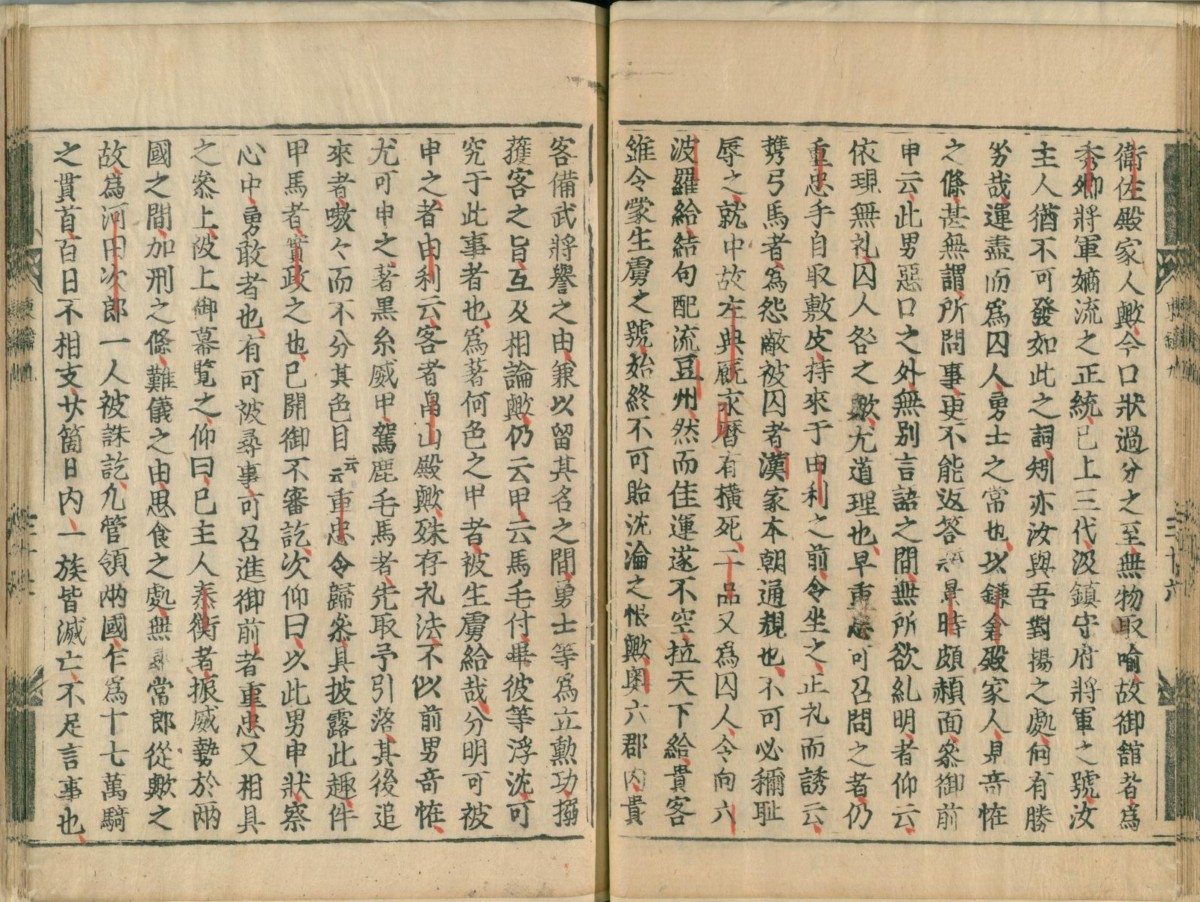 衛佐殿家人歟今口狀過分之至無物取喩故御舘者爲
秀鄕將軍嫡流之正統已上三代汲鎮守府將軍之號汝
主人猶不可發如此之詞矧亦汝與吾對揚之處何有勝
劣哉運盡而爲囚人勇士之常也以鎌倉殿家人見奇恠
之條甚無謂所問事更不能返答云景時頗赧面参御前
申云此男惡口之外無別言語之間無所欲糺明者仰云
依現無礼囚人咎之歟尤道理也早重忠可召問之者仍
重忠手自取敷皮持來于由利之前令坐之正礼而誘云
携弓馬者爲怨敵被囚者漢家本朝通規也不可必稱耻
辱之就中故左典厩永暦有横死二品又爲囚人令向六
波羅給結句配流豆州然而佳運遂不空拉天下給貴客
雖令蒙生虜之號始終不可貽沈淪之恨歟奧六郡內貴
客備武將譽之由兼以留其名之間勇士等爲立勲功搦
獲客之旨互及相論歟仍云甲云馬毛付畢彼等浮沈可
究于此事者也爲著何色之甲者被生虜給哉分明可被
申之者由利云客者畠山殿歟殊存礼法不似前男奇恠
尤可申之著黒糸威甲駕鹿毛馬者先取予引落其後追
來者嗷々而不分其色目云云重忠令歸参具披露此趣件
甲馬者實政之也已開御不審訖次仰曰以此男申狀察
心中勇敢者也有可被尋事可召進御前者重忠又相具
之参上陂上御幕覧之仰曰已主人泰衡者振威勢於兩
國之間加刑之條難儀之由思食之處無尋常郎從歟之
故爲河田次郎一人被誅訖凡管領兩國乍爲十七萬騎
之貫首百日不相支廿箇日內一族皆滅亡不足言事也